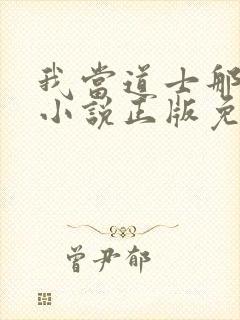 我當道士那
小說正版免
曾尹郁